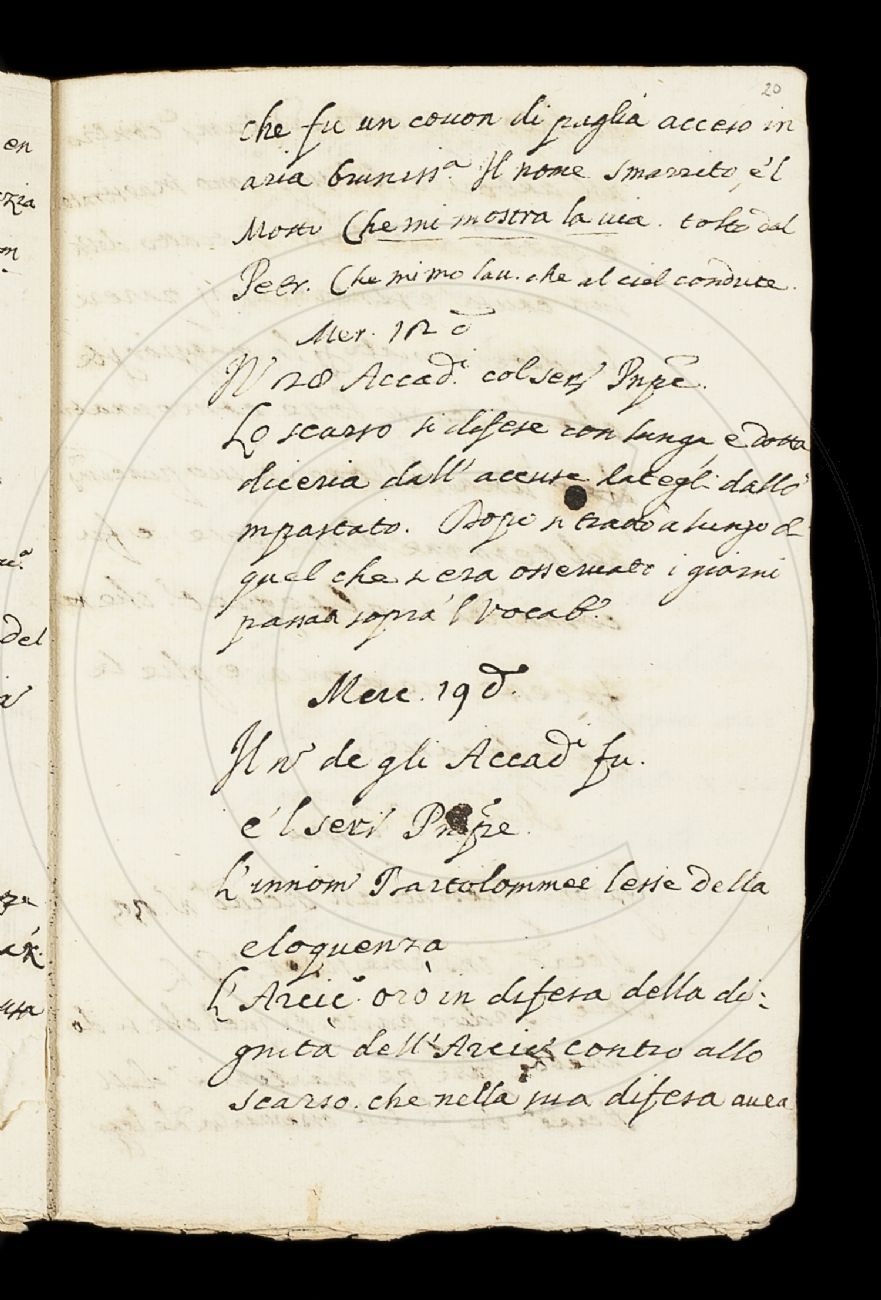 20
che fu un couon di paglia acceso in
aria bruniss.ª Il nome smarrito, e'l
Motto Che mi mostra la uia. tolto dal
Petr. Che mi mo la u. che al ciel conduce.
Mer. 12 d
N° 28 Accad.i col Ser.° Pnpe.
Lo scarso si difese con lunga, e dotta
diceria dall' accuse dategli dallo'
mpastato. Dopo si trattò a lungo di
quel che s era osseruato i giorni
passati sopra'l Vocab.°
Merc. 19 d.
Il n° de gli Accad.i fu.
e'l ser.° Pnpe.
L'innom.° Bartolommei lesse della
eloquenza
L'Arcic.° orò in difesa della di-
gnità dell'Arcic.° contro allo
scarso. che nella sua difesa auea
en
zia
del